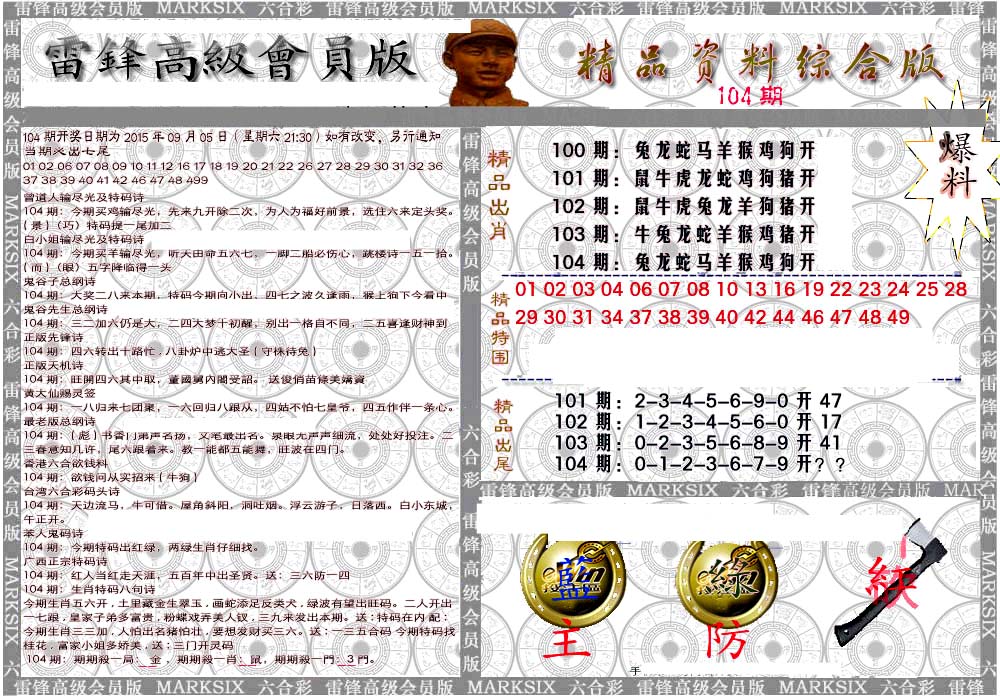 雷锋高级会员版 MARKSIX 六合彩 雷锋高级会员版 MARKSIX 六合彩 雷锋高级会员版 MARKSIX 六合彩 雷锋
雷鋒高級會員版
精品资料综合版
104期
爆料
104期开奖日期为2015年09月05日(星期六21:30)如有改变,另行通知
当期必出七尾
01 02 06 07 08 09 10 11 12 16 17 18 19 20 21 22 26 27 28 29 30 31 32 36
37 38 39 40 41 42 46 47 48 499
曾道人输尽光及特码诗
104期:今期买鸡输尽光,先来九开除二次,为人为福好前景,选住六来定头奖。
{景}(巧)特码提一尾加二
白小姐输尽光及特码诗
104期:今期买羊输尽光,听天由命五六七,一脚二船必伤心,跳楼诗一五一拾。
{而}(眼)五字降临得一头
鬼谷子总纲诗
104期:大奖二八来本期,特码今期向小出,四七之波久逢雨,猴上狗下今看中
鬼谷先生总纲诗
104期:三二加六仍是大,二四大梦十初醒,别出一格自不同,二五喜逢财神到
正版先锋诗
104期:四六转出十路忙,八卦炉中逃大圣{守株待兔}
正版天机诗
104期:旺開四六其中取,董國舅內閣受詔。送俊俏苗條美嬌資
黄大仙赐灵签
104期:一八归来七团聚,一六回归八跟从,四姑不怕七皇爷,四五作伴一条心。
最老版总纲诗
104期:{彪}书香门第声名扬,文笔最出名。泉眼无声声细流,处处好投注。二
三春意知几许,尾六跟着来。教一能都五能舞,旺波在四门。
香港六合欲钱料
104期:欲钱问从实招来{牛狗}
台湾六合彩码头诗
104期:天边流马,牛可借。屋角斜阳,洞吐烟。浮云游子,日落西。白小东城,
午正开。
苯人鬼码诗
104期:今期特码出红绿,两绿生肖仔细找。
广西正宗特码诗
104期:红人当红走天涯,五百年中出圣贤。送:三六防一四
104期:生肖特码八句诗
今期生肖五六开,土里藏金生翠玉,画蛇添足反类犬,绿波有望出旺码。二人开出
一七跟,皇家子弟多富贵,粉蝶戏弄美人钗,三九来发出本期。送:特码在内 配:
今期生肖三三加,人怕出名猪怕壮,要想发财买三六。送:一三五合码 今期特码找
桂花,富家小姐多娇美,送:三门开灵码
104期:期期殺一局:金,期期殺一肖:鼠,期期殺一門:3門。
精品出肖
100期:兔龙蛇马羊猴鸡狗开
101期:鼠牛虎龙蛇鸡狗猪开
102期:鼠牛虎兔龙羊狗猪开
103期:牛兔龙蛇羊猴鸡猪开
104期:兔龙蛇马羊猴鸡狗开
精品特围
01 02 03 04 06 07 08 10 13 16 19 22 23 24 25 28
29 30 31 34 37 38 39 40 42 44 46 47 48 49
精品出尾
101期:2-3-4-5-6-9-0开47
102期:1-2-3-4-5-6-0开17
103期:0-2-3-5-6-8-9开41
104期:0-1-2-3-6-7-9开??
雷锋高级会员版 MARKSIX 六合彩 雷锋高级会员版 MAR
藍
綠
主
防
手
雷锋高级会员版 MARKSIX 六合彩 雷锋高级会员版 MARKSIX 六合彩 雷锋高级会员版 MARKSIX 六合彩 雷锋